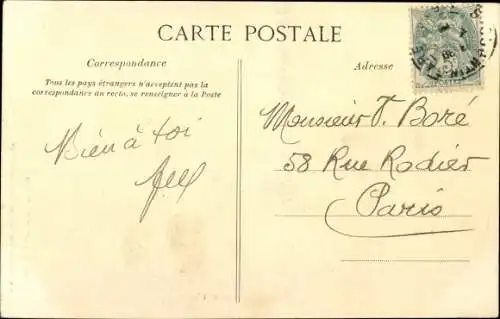 CARTE POSTALE
Correspondance
Tous les pays étrangers n'acceptent pas la
correspondance au recto, se renseigner à la Poste
Bien à toi
Adresse
Monsieur F. Boré
58 Rue Rodier
Paris